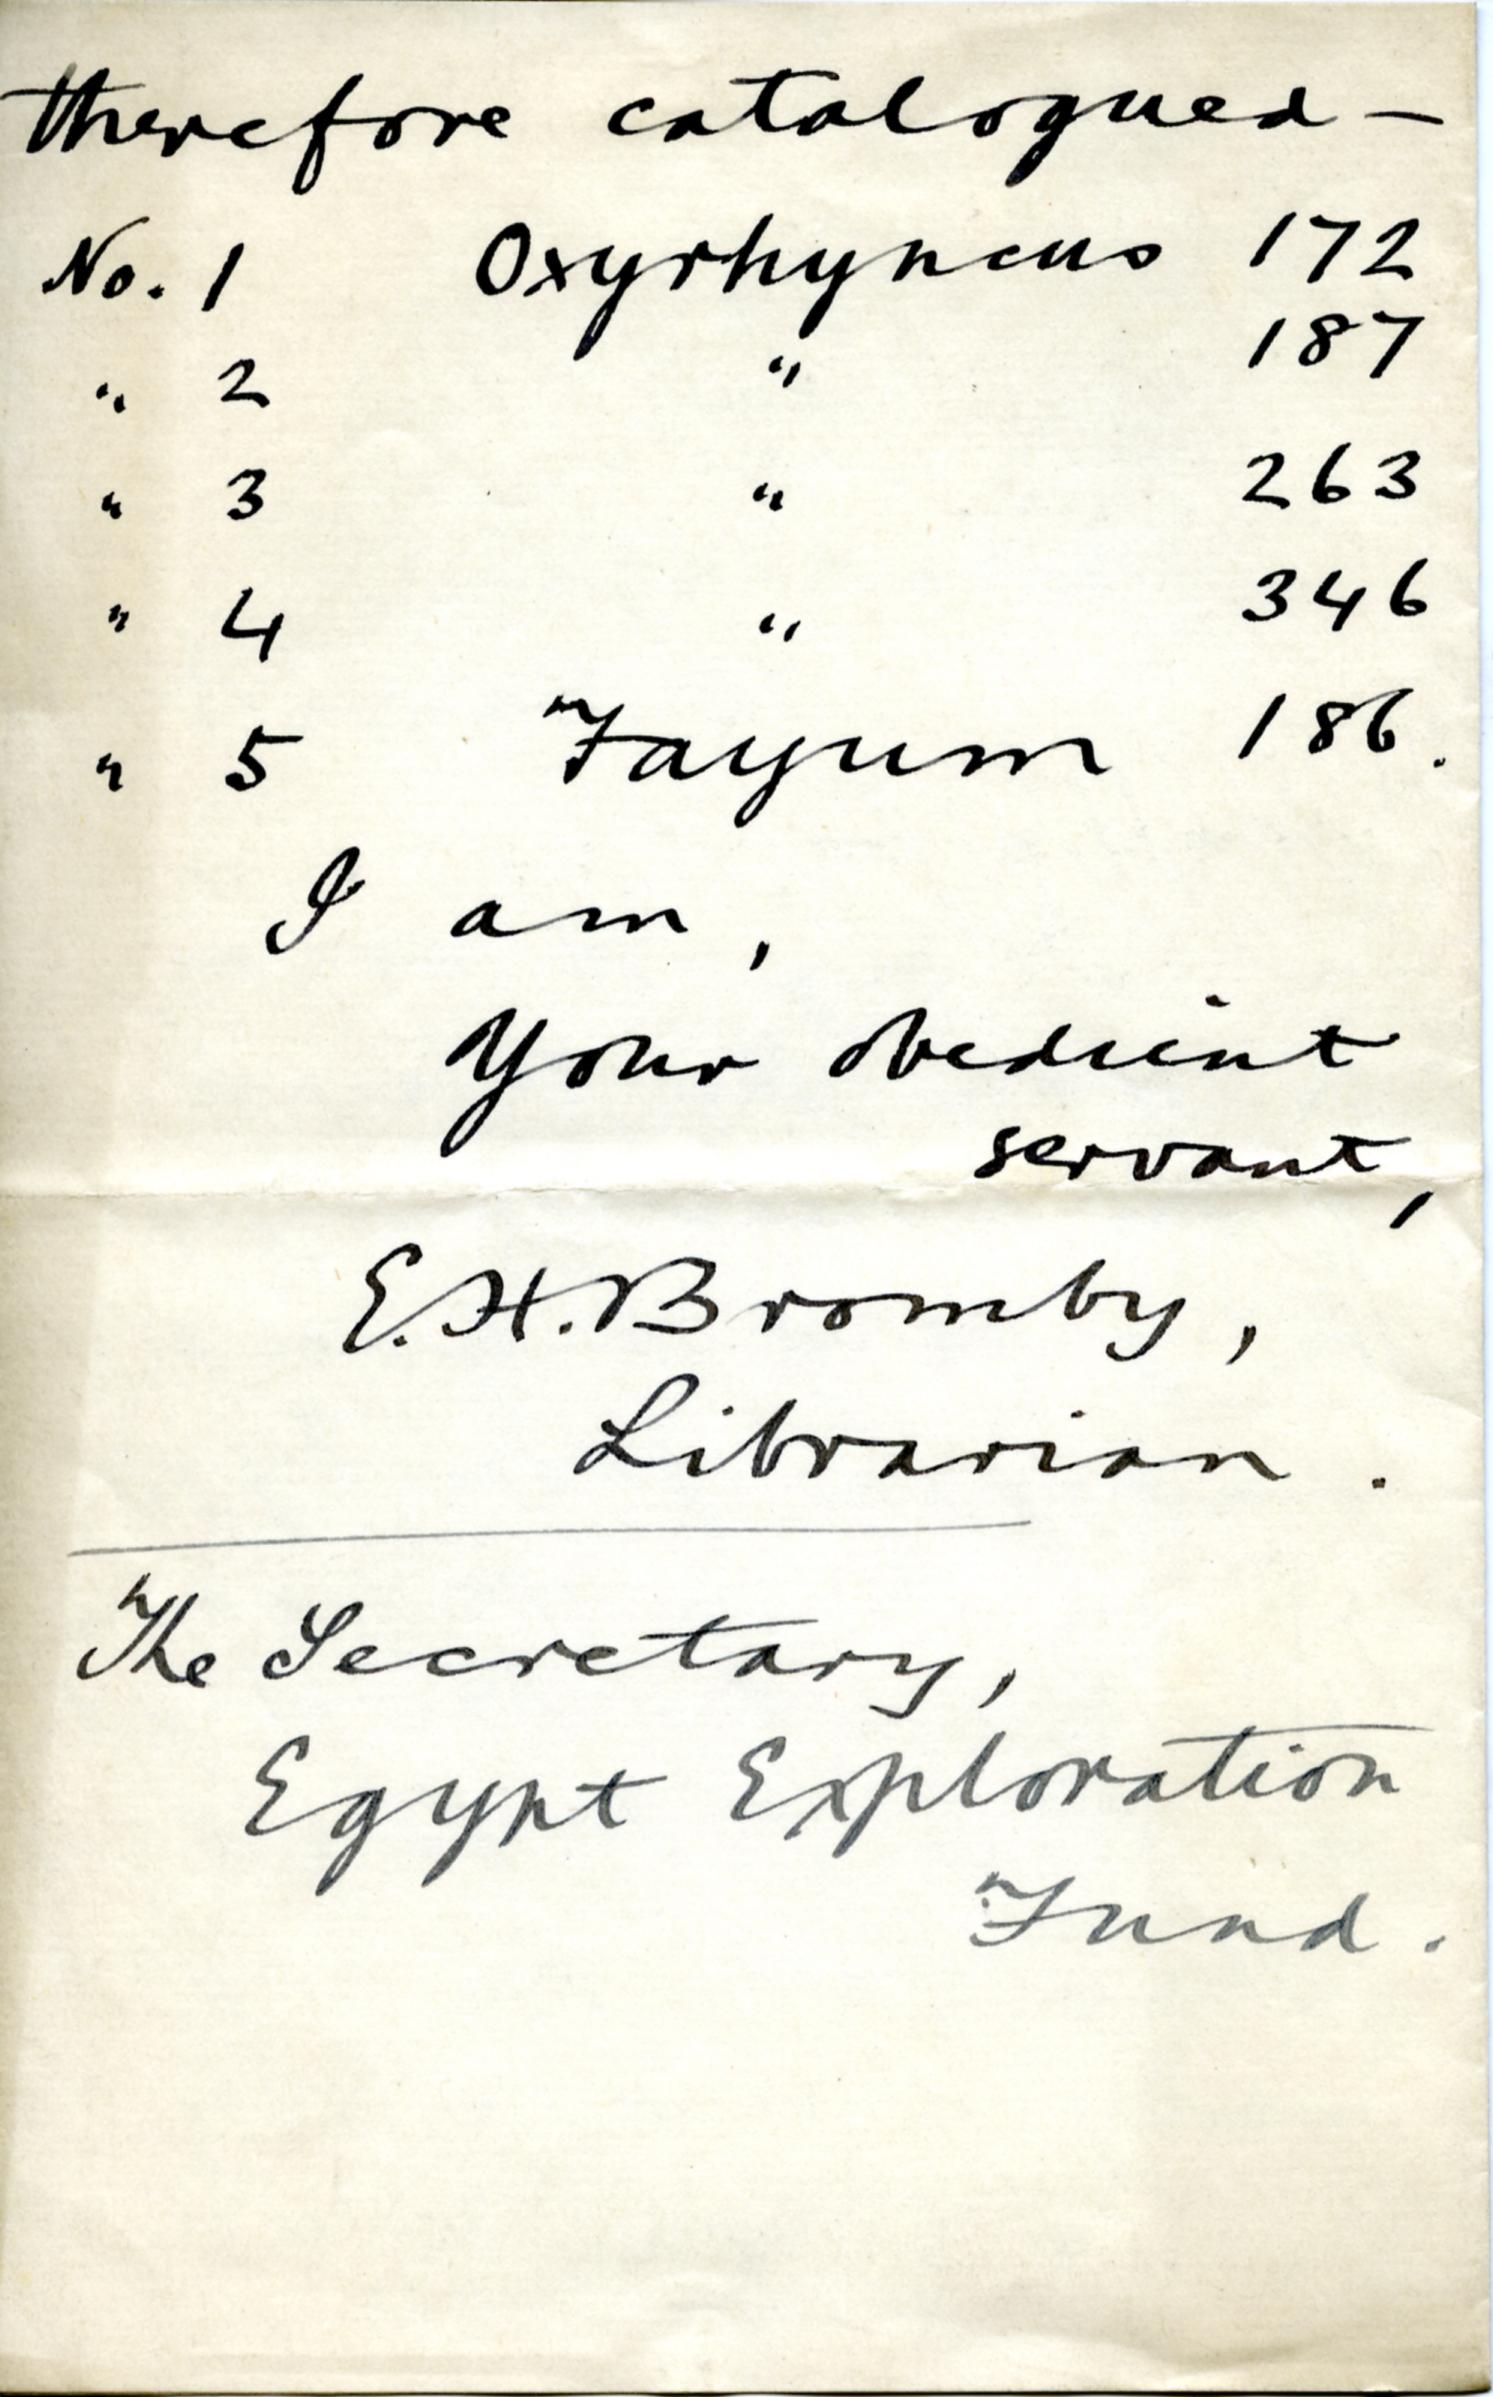 therefore catalogued —
No. 1 Oxyrhyncus 172
" 2 " 187
" 3 " 263
" 4 " 346
" 5 Fayum 186.
I am,
Your obedient
servant,
E.H. Bromby,
Librarian.
The Secretary,
Egypt Exploration
Fund.